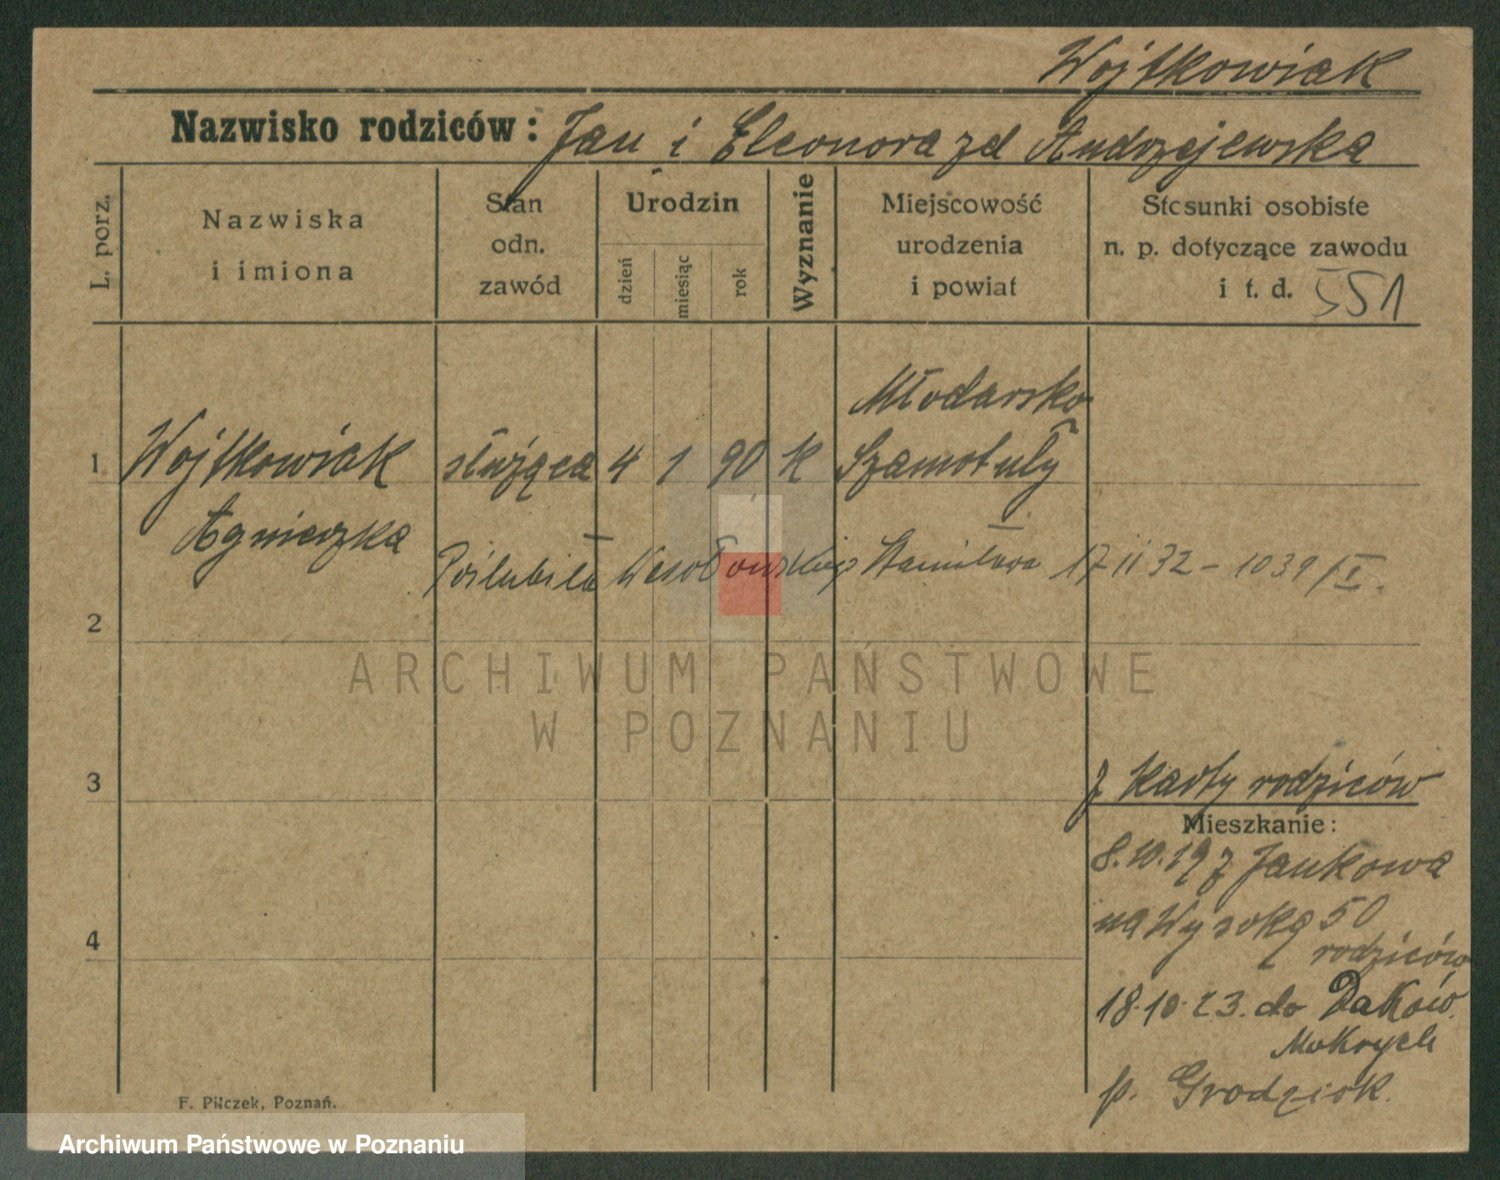 Wojtkowiak
Nazwisko rodziców: Jan i Eleonora zd Andrzejewska
L. porz.
Nazwiska
i imiona
Stan
odn.
zawód
Urodzin
dzień
miesiąc
rok
Wyznanie
Miejscowość
urodzenia
i powiat
Stosunki osobiste
n. p. dotyczące zawodu
i t. d. 551
Młodarsko
1 Wojtkowiak służąca 4 1 90 k Szamotuły
Agnieszka
Poślubiła Wesołowskiego Stanisława 17 II 32 - 1039/I.
2
ARCHIWUM PAŃSTWOWE
W POZNANIU
z karty rodziców
3
Mieszkanie:
8.10.19 z Jankowa
na Wysoką 50
rodziców
4
18.10.23. do Daków
Mokrych
p. Grodzisk.
F. Pilczek, Poznań.
Archiwum Państwowe w Poznaniu